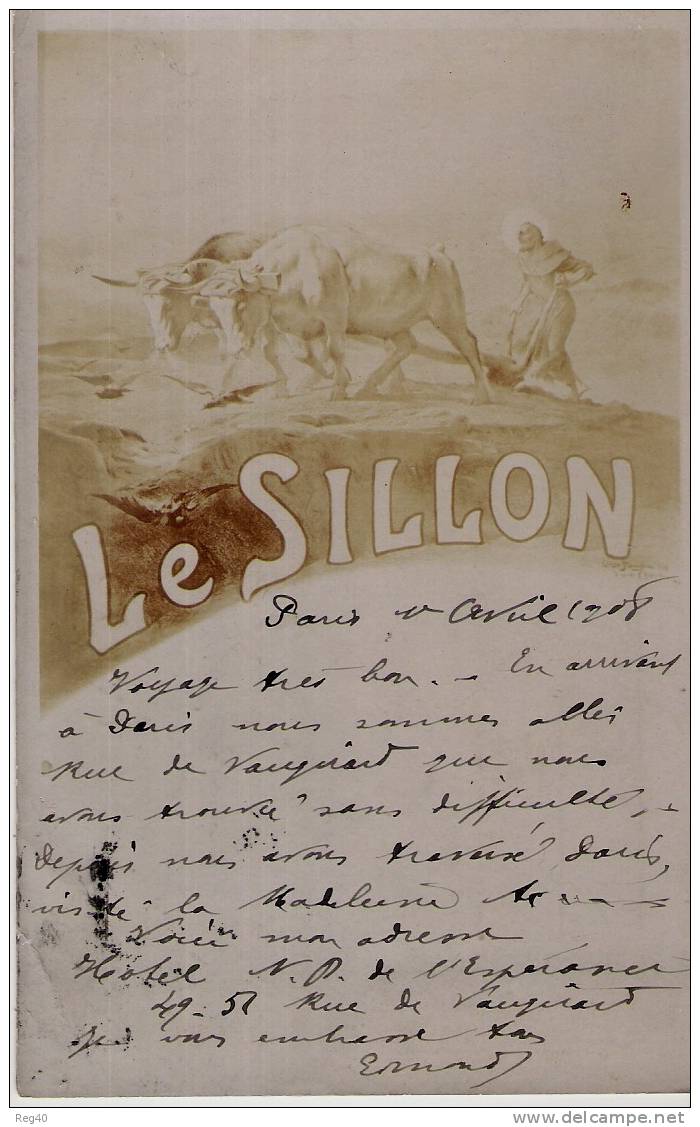 Le SILLON
Paris 1r Avril 1908
Voyage très bon. — En arrivant
à Paris nous sommes allés
Rue de Vaugirard que nous
avons trouvé sans difficulté, —
depuis nous avons traversé Paris,
visité la Madeleine
Voici mon adresse
Hotel N. D. de l'Espérance
49-51 Rue de Vaugirard
Je vous embrasse tous
Edmond
Reg40
www.delcampe.net